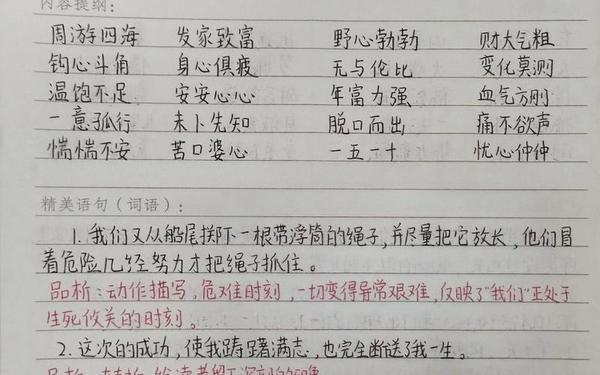 内容提纲:
周游四海 发家致富 野心勃勃 财大气粗
钩心斗角 身心俱疲 无与伦比 变化莫测
温饱不足 安安心心 年富力强 血气方刚
一意孤行 未卜先知 脱口而出 痛不欲声
惴惴不安 苦口婆心 一五一十 忧心忡忡
精美语句(词语):
1. 我们又从船尾掷下一根带浮筒的绳子,并尽量把它放长,他们冒
着危险几经努力才把绳子抓住。
品析:动作描写,危难时刻,一切变得异常艰难,反映了"我们"正处于
生死攸关的时刻。
2. 这次的成功,使我踌躇满志,也完全断送了我一生。